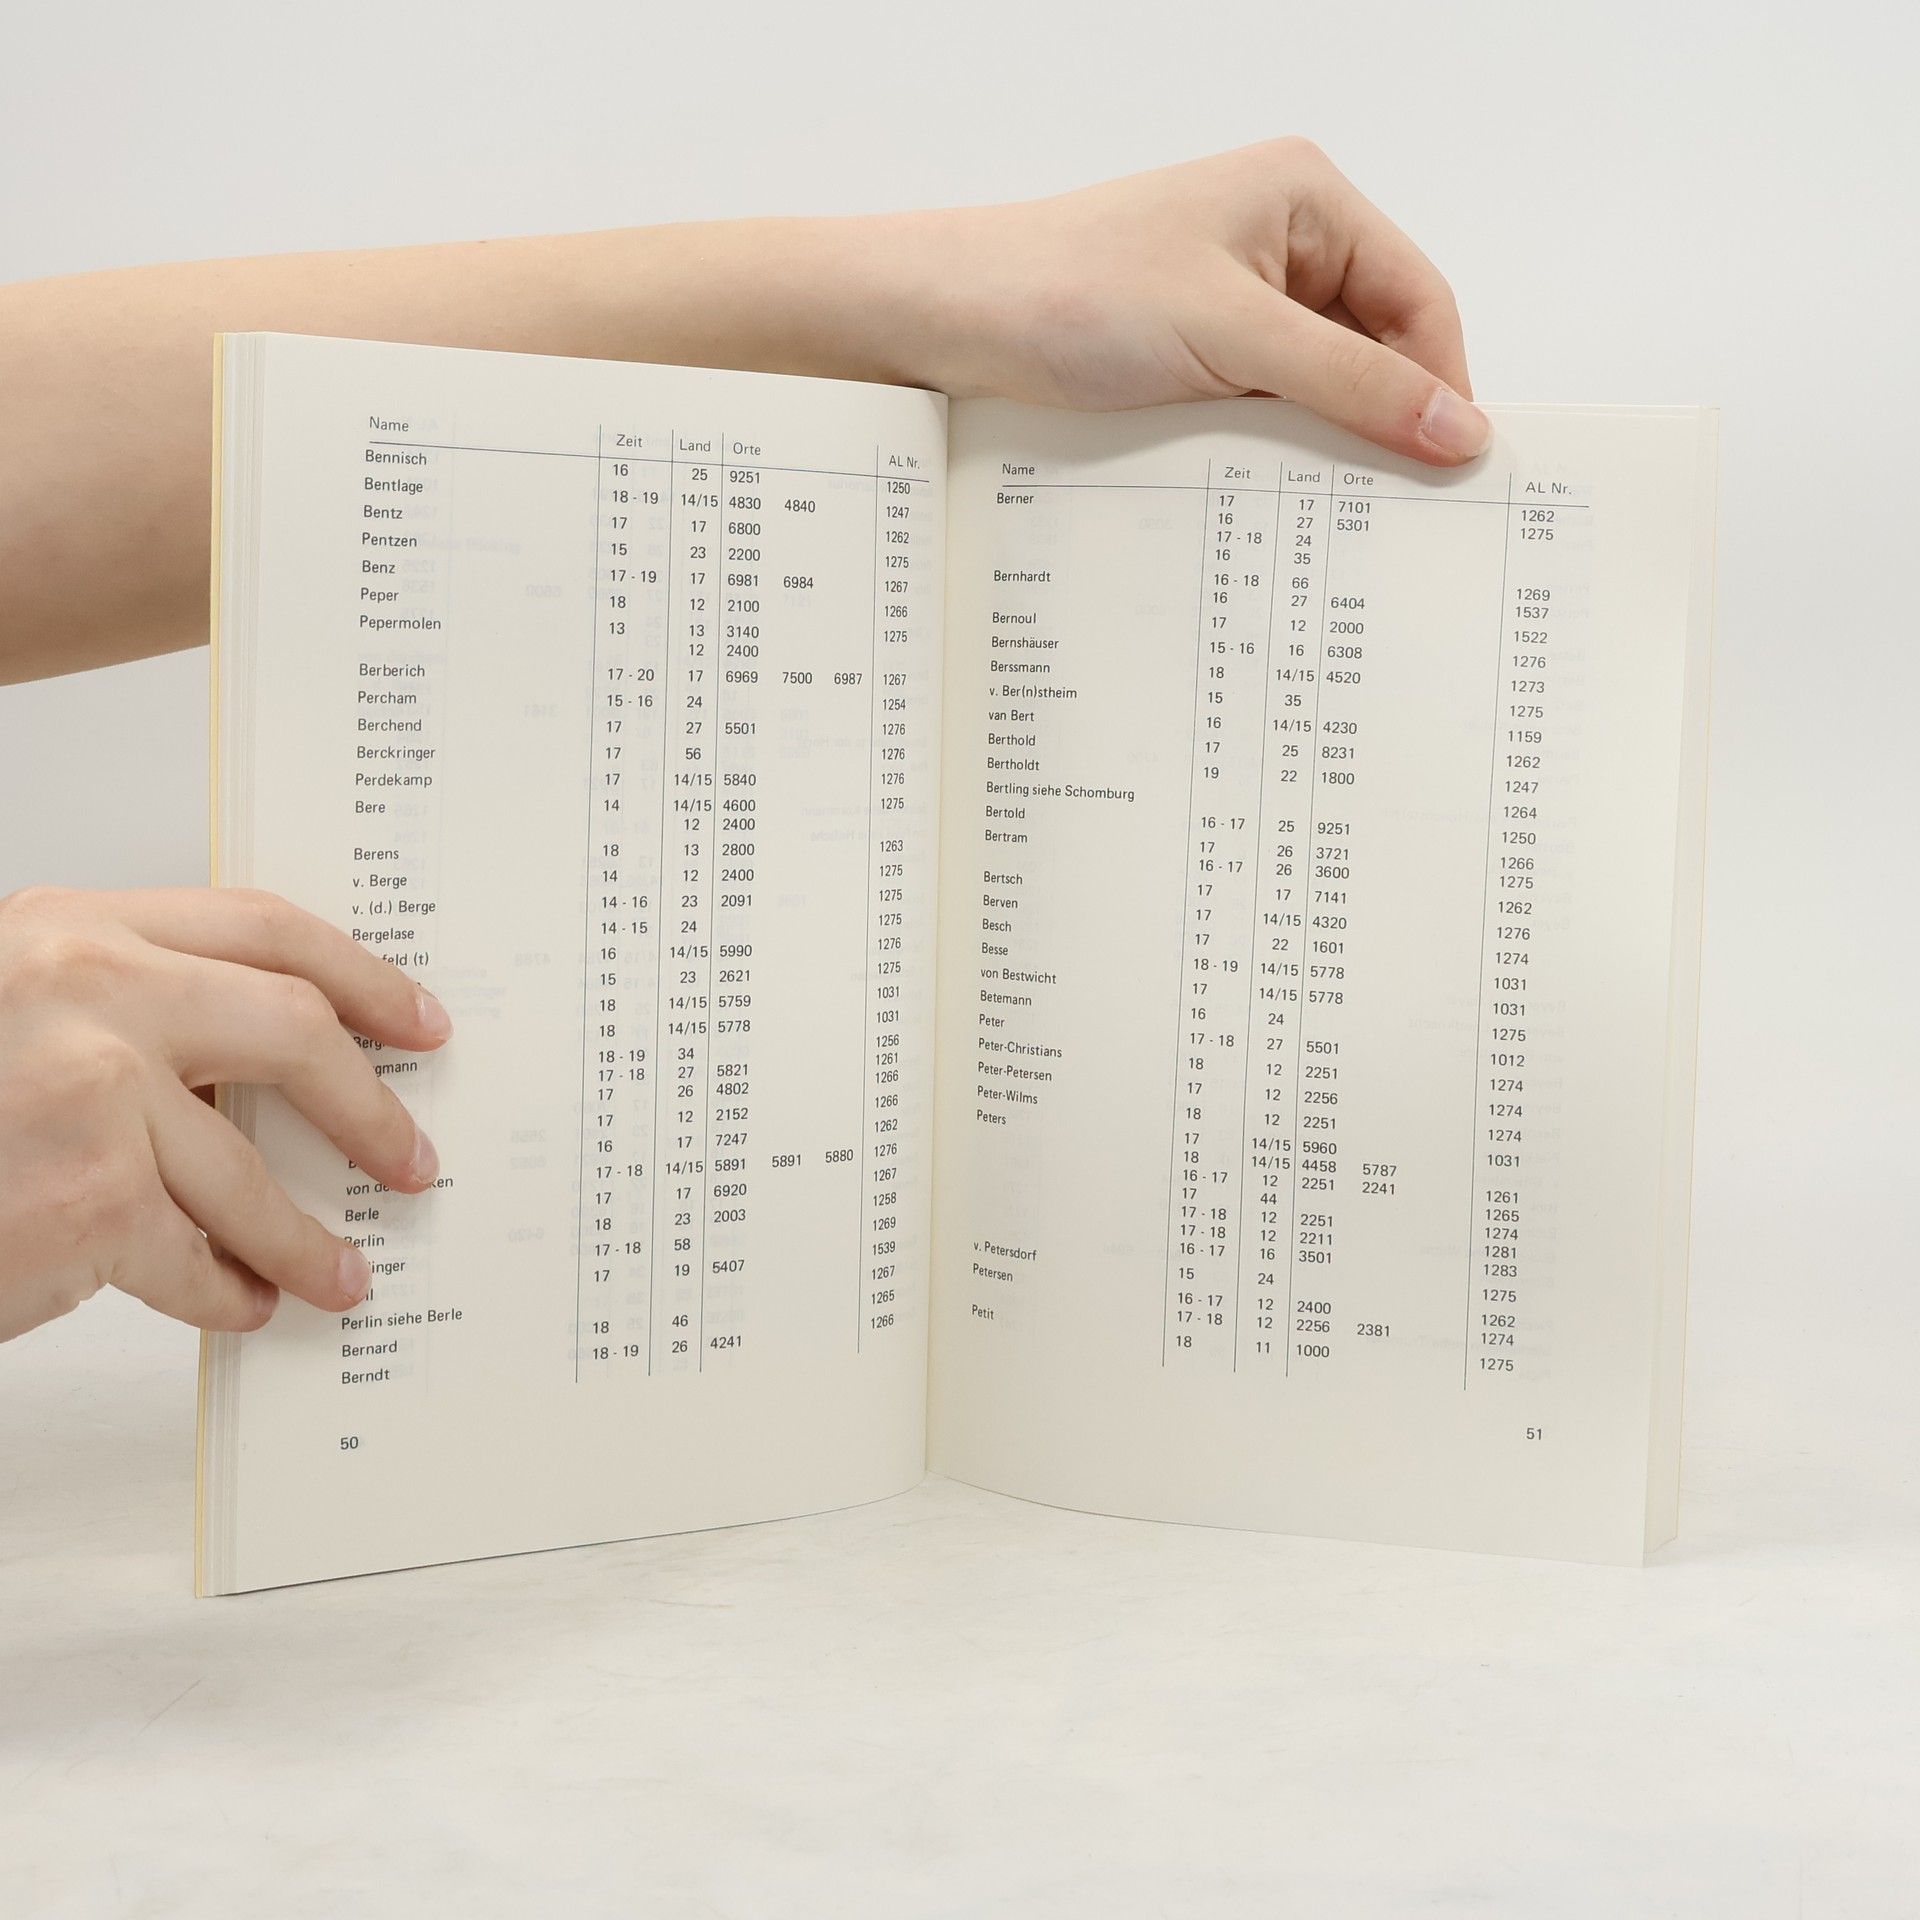 Name Zeit Land Orte AL Nr.
Bennisch 16 25 9251 1250
Bentlage 18 - 19 14/15 4830 4840 1247
Bentz 17 17 6800 1262
Pentzen 15 23 2200 1275
Benz 17 - 19 17 6981 6984 1267
Peper 18 12 2100 1266
Pepermolen 13 13 3140 1275
12 2400
Berberich 17 - 20 17 6969 7500 6987 1267
Percham 15 - 16 24 1254
Berchend 17 27 5501 1276
Berckringer 17 56 1276
Perdekamp 17 14/15 5840 1276
Bere 14 14/15 4600 1275
12 2400
Berens 18 13 2800 1263
v. Berge 14 12 2400 1275
v. (d.) Berge 14 - 16 23 2091 1275
Bergelase 14 - 15 24 1275
(t) 16 14/15 5990 1276
15 23 2621 1275
18 14/15 5759 1031
18 14/15 5778 1031
18 - 19 34 1256
17 - 18 27 5821 1261
17 26 4802 1266
17 12 2152 1266
16 17 7247 1262
von 17 - 18 14/15 5891 5891 5880 1276
Berle 17 17 6920 1267
Berlin 18 23 2003 1258
17 - 18 58 1269
17 19 5407 1539
Perlin siehe Berle 1267
Bernard 18 46 1265
Berndt 18 - 19 26 4241 1266
50
Name Zeit Land Orte AL Nr.
Berner 17 17 7101 1262
16 27 5301 1275
17 - 18 24
16 35
Bernhardt 16 - 18 66 1269
16 27 6404 1537
Bernoul 17 12 2000 1522
Bernshäuser 15 - 16 16 6308 1276
Berssmann 18 14/15 4520 1273
v. Ber(n)stheim 15 35 1275
van Bert 16 14/15 4230 1159
Berthold 17 25 8231 1262
Bertholdt 19 22 1800 1247
Bertling siehe Schomburg 1264
Bertold 16 - 17 25 9251 1250
Bertram 17 26 3721 1266
16 - 17 26 3600 1275
Bertsch 17 17 7141 1262
Berven 17 14/15 4320 1276
Besch 17 22 1601 1274
Besse 18 - 19 14/15 5778 1031
von Bestwicht 17 14/15 5778 1031
Betemann 16 24 1275
Peter 17 - 18 27 5501 1012
Peter-Christians 18 12 2251 1274
Peter-Petersen 17 12 2256 1274
Peter-Wilms 18 12 2251 1274
Peters 17 14/15 5960 1031
18 14/15 4458 5787
16 - 17 12 2251 2241 1261
17 44 1265
17 - 18 12 2251 1274
17 - 18 12 2211 1281
16 - 17 16 3501 1283
v. Petersdorf 15 24 1275
Petersen 16 - 17 12 2400 1262
17 - 18 12 2256 2381 1274
Petit 18 11 1000 1275
51